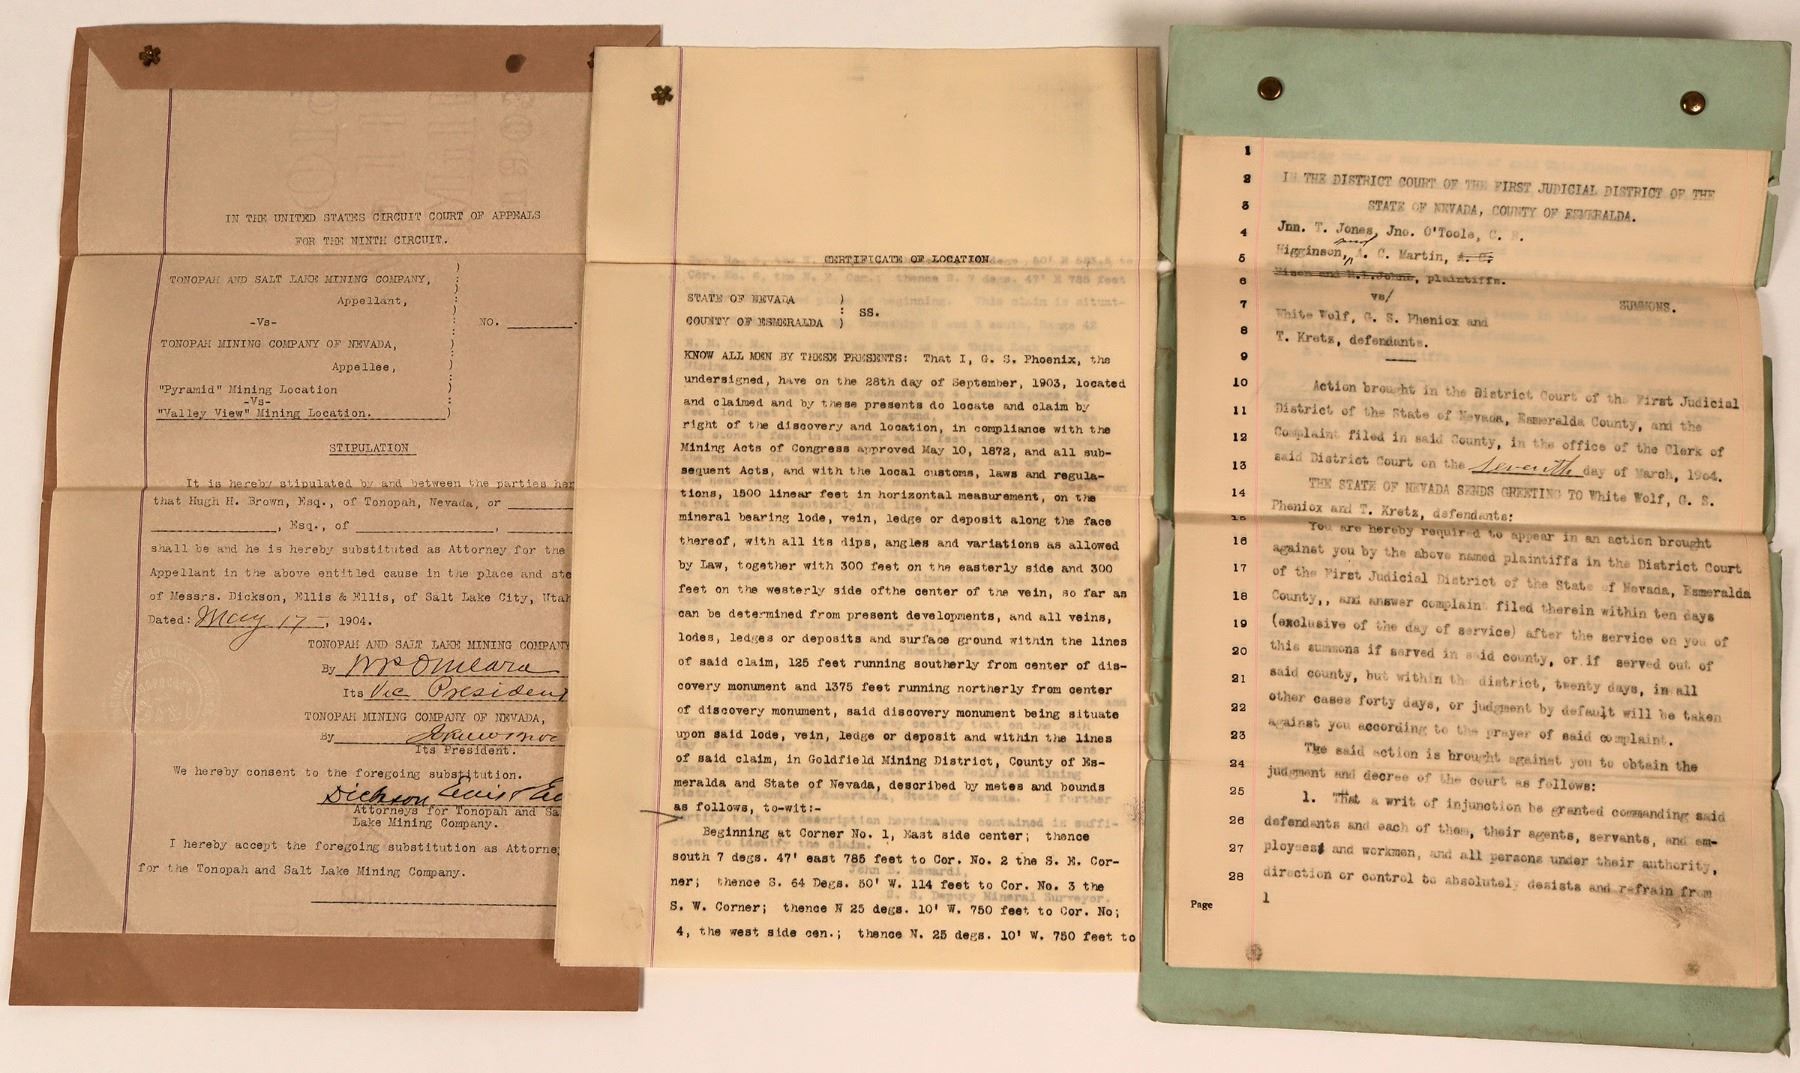 IN THE UNITED STATES CIRCUIT COURT OF APPEALS
FOR THE NINTH CIRCUIT.
TONOPAH AND SALT LAKE MINING COMPANY,
Appellant,
-Vs-
NO.
TONOPAH MINING COMPANY OF NEVADA,
Appellee,
"Pyramid" Mining Location
-Vs-
"Valley View" Mining Location.
STIPULATION
It is hereby stipulated by and between the parties
that Hugh H. Brown, Esq., of Tonopah, Nevada, or
, Esq., of ,
shall be and he is hereby substituted as Attorney for the
Appellant in the above entitled cause in the place and
of Messrs. Dickson, Ellis & Ellis, of Salt Lake City, Utah
Dated: May 17, 1904.
TONOPAH AND SALT LAKE MINING COMPANY
By
Its Vic President
TONOPAH MINING COMPANY OF NEVADA,
By
Its President.
We hereby consent to the foregoing substitution.
Dickson Ellis &
Attorneys for Tonopah and
Lake Mining Company.
I hereby accept the foregoing substitution as
for the Tonopah and Salt Lake Mining Company.
CERTIFICATE OF LOCATION
STATE OF NEVADA )
: SS.
COUNTY OF ESMERALDA )
KNOW ALL MEN BY THESE PRESENTS: That I, G. S. Phoenix, the
undersigned, have on the 28th day of September, 1903, located
and claimed and by these presents do locate and claim by
right of the discovery and location, in compliance with the
Mining Acts of Congress approved May 10, 1872, and all sub-
sequent Acts, and with the local customs, laws and regula-
tions, 1500 linear feet in horizontal measurement, on the
mineral bearing lode, vein, ledge or deposit along the face
thereof, with all its dips, angles and variations as allowed
by Law, together with 300 feet on the easterly side and 300
feet on the westerly side ofthe center of the vein, so far as
can be determined from present developments, and all veins,
lodes, ledges or deposits and surface ground within the lines
of said claim, 125 feet running southerly from center of dis-
covery monument and 1375 feet running northerly from center
of discovery monument, said discovery monument being situate
upon said lode, vein, ledge or deposit and within the lines
of said claim, in Goldfield Mining District, County of Es-
meralda and State of Nevada, described by metes and bounds
as follows, to-wit:-
Beginning at Corner No. 1, East side center; thence
south 7 degs. 47' east 785 feet to Cor. No. 2 the S. E. Cor-
ner; thence S. 64 Degs. 50' W. 114 feet to Cor. No. 3 the
S. W. Corner; thence N 25 degs. 10' W. 750 feet to Cor. No;
4, the west side cen.; thence N. 25 degs. 10' W. 750 feet to
1
2 IN THE DISTRICT COURT OF THE FIRST JUDICIAL DISTRICT OF THE
3 STATE OF NEVADA, COUNTY OF ESMERALDA.
4 Jnn. T. Jones, Jno. O'Toole, C. E.
5 Higginson, and A. C. Martin, A. C.
6 Eison and H.L.Johns, plaintiffs.
7 vs/ SUMMONS.
White Wolf, G. S. Pheniox and
8 T. Kretz, defendants.
9
10 Action brought in the District Court of the First Judicial
11 District of the State of Nevada, Esmeralda County, and the
12 Complaint filed in said County, in the office of the Clerk of
13 said District Court on the seventh day of March, 1904.
14 THE STATE OF NEVADA SENDS GREETING TO White Wolf, G. S.
Pheniox and T. Kretz, defendants:
15 You are hereby required to appear in an action brought
16 against you by the above named plaintiffs in the District Court
17 of the First Judicial District of the State of Nevada, Esmeralda
18 County,, and answer complaint filed therein within ten days
19 (exclusive of the day of service) after the service on you of
20 this summons if served in said county, or if served out of
21 said county, but within the district, twenty days, in all
22 other cases forty days, or judgment by default will be taken
23 against you according to the prayer of said complaint.
24 The said action is brought against you to obtain the
judgment and decree of the court as follows:
25 1. That a writ of injunction be granted commanding said
26 defendants and each of them, their agents, servants, and em-
27 ployees and workmen, and all persons under their authority,
28 direction or control to absolutely desists and refrain from
Page 1